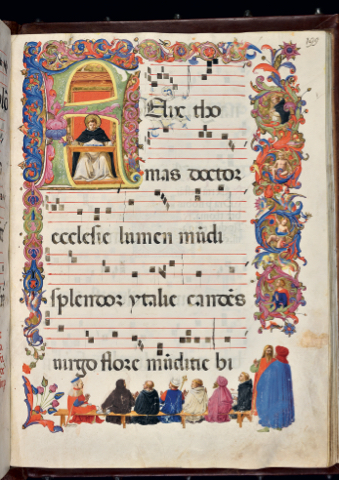 Felix tho
mas doctor
ecclesie lumen mūdi
splendor ytalie candēs
uirgo flore mūditie bi